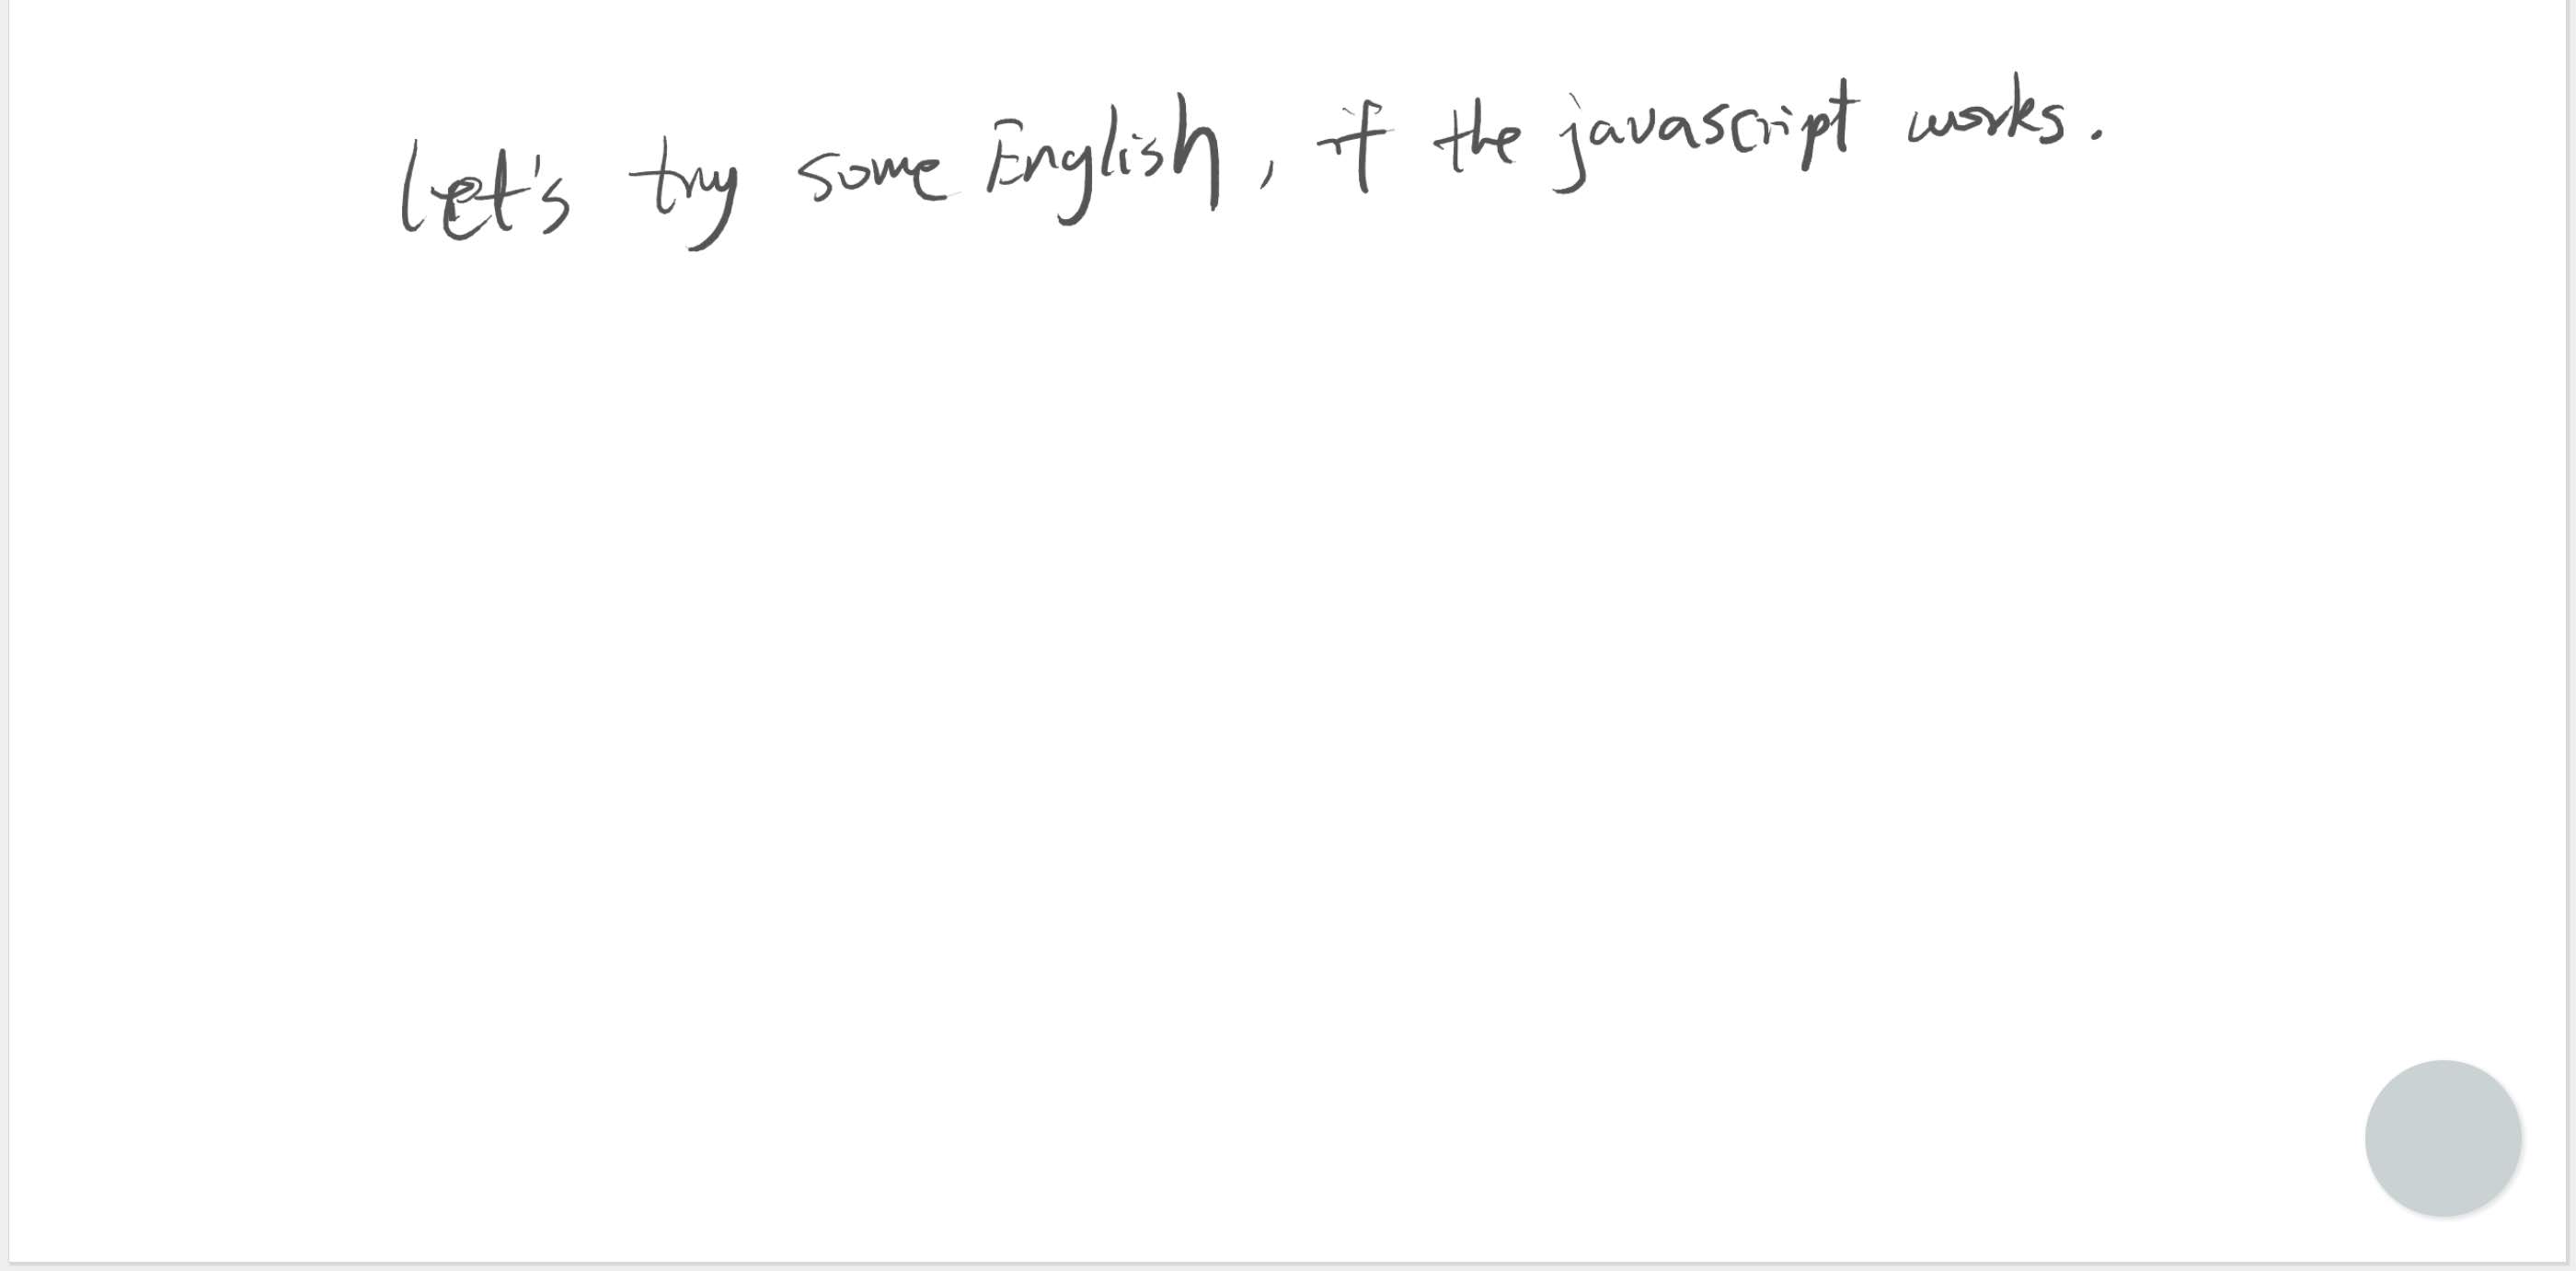 let's try some English, if the javascript works.